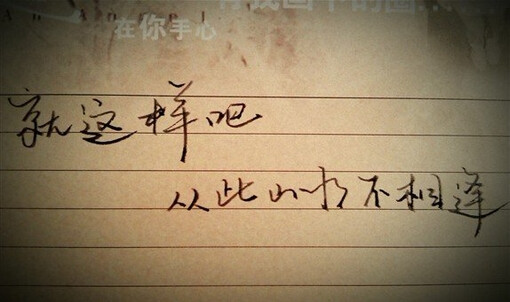 在你手心
就这样吧
从此山水不相逢